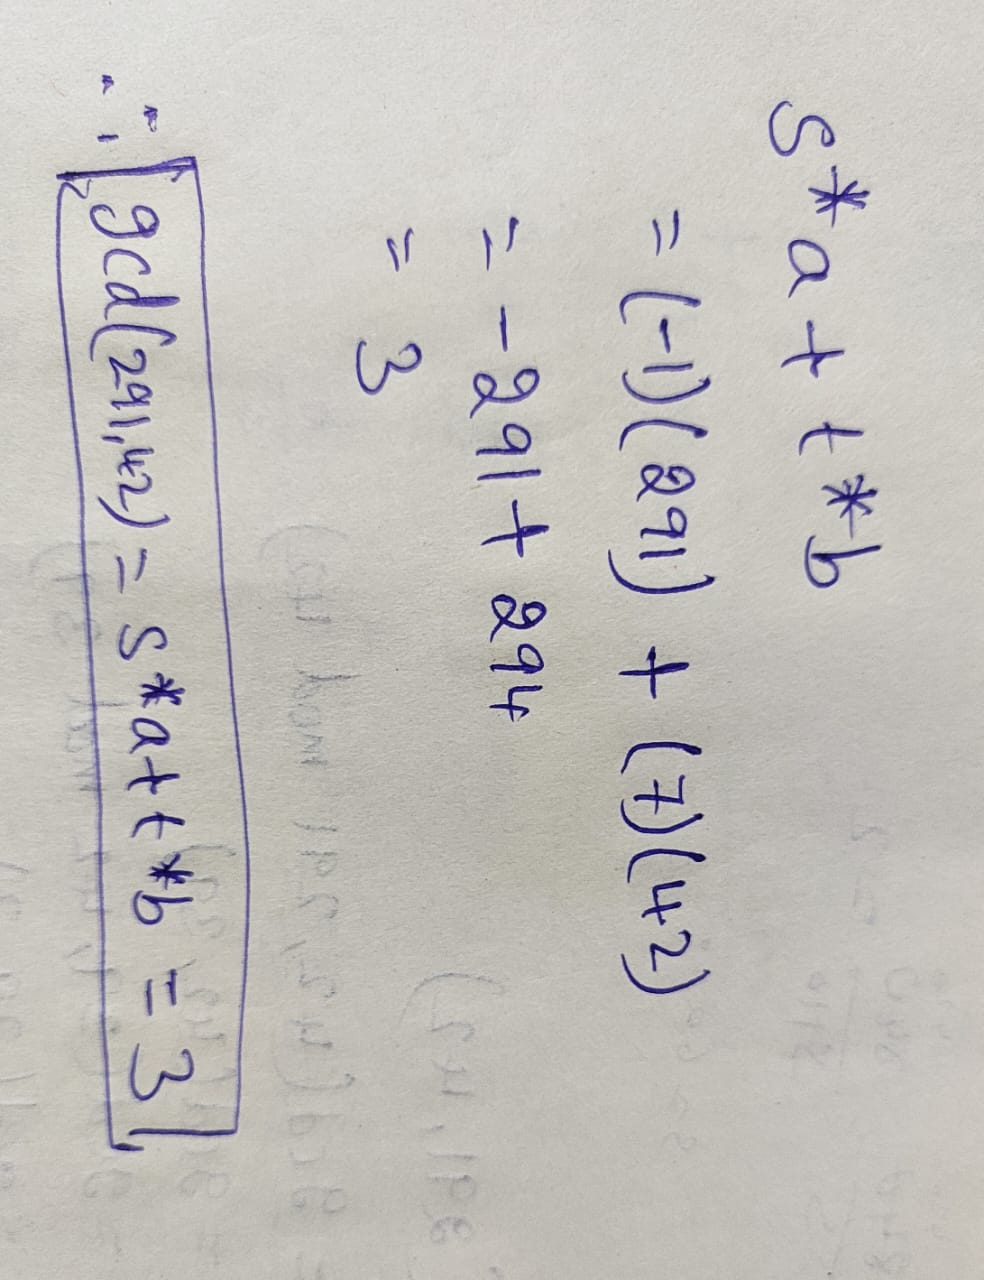 S*a + t*b
= (-1)(291) + (7)(42)
= -291 + 294
= 3
∴ gcd(291,42) = S*a + t*b = 3